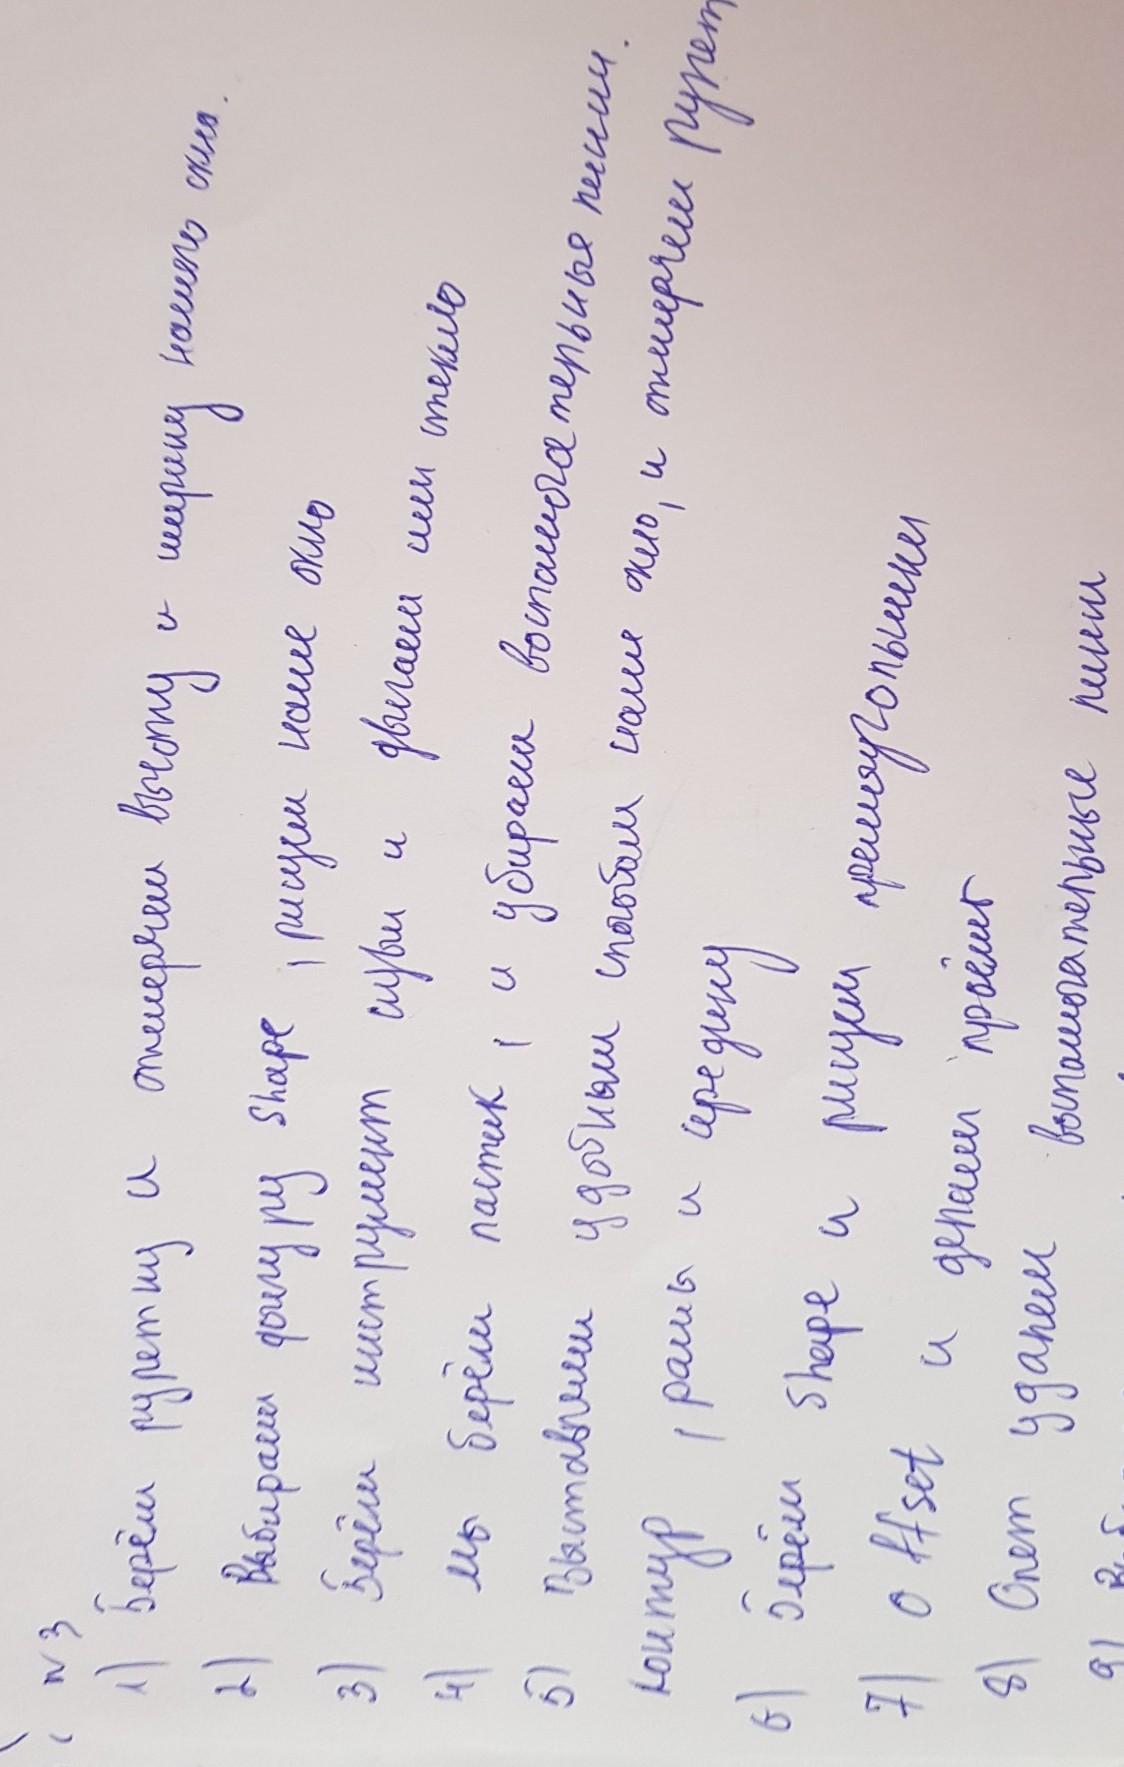 №3
1) Берём рулетку и отмеряем высоту и ширину нашего окна.
2) Выбираем фигуру Shape, рисуем наше окно
3) Берём инструмент сузы и двигаем им стекло
4) мы берём ластик, и убираем вспомогательные линии.
5) Выставляем удобным способом наше окно, и отмеряем рулет
контур, рамы и середину
6) Берём Shape и рисуем прямоугольники
7) Offset и делаем проёмы
8) Опет удаляем вспомогательные линии
9)